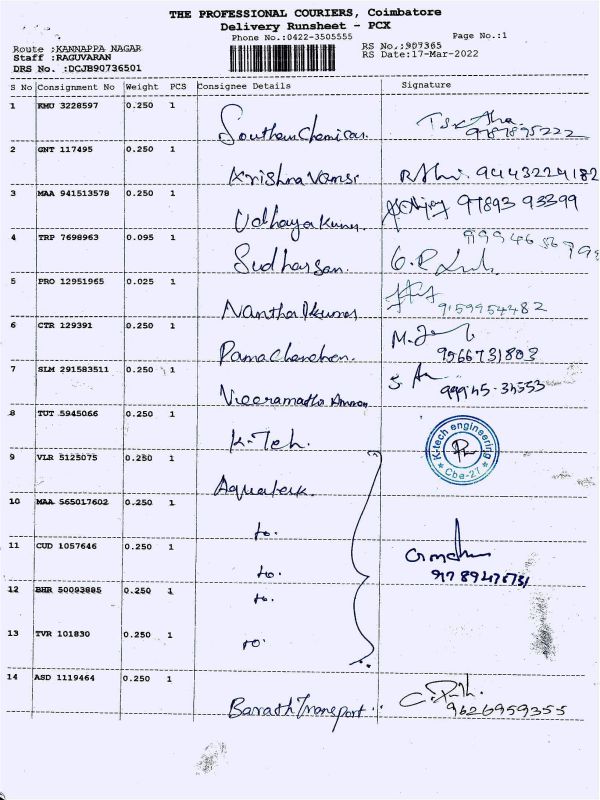 THE PROFESSIONAL COURIERS, Coimbatore
Delivery Runsheet - PCX
Phone No.:0422-3505555
Page No.:1
Route :KANNAPPA NAGAR
RS No.:907365
Staff :RAGUVARAN
RS Date:17-Mar-2022
DRS No. :DCJB90736501
S No Consignment No Weight PCS Consignee Details Signature
1 KMU 3228597 0.250 1 Southern Chemicas.
2 GNT 117495 0.250 1 Krishna Vamsi 9443224182
3 MAA 941513578 0.250 1 Udhaya Kumar 97893 93399
4 TRP 7698963 0.095 1 Sudharsan.
5 PRO 12951965 0.025 1 Nantha Kumar 9159954482
6 CTR 129391 0.250 1 Ramachandran. 9566731803
7 SLM 291583511 0.250 1 Veeramatha Amman 99945-34553
8 TUT 5945066 0.250 1 K-Teh. K-tech engineering Cbe-27
9 VLR 5125075 0.250 1
10 MAA 565017602 0.250 1 to.
11 CUD 1057646 0.250 1 to.
12 BHR 50093885 0.250 1 to.
13 TVR 101830 0.250 1 to.
14 ASD 1119464 0.250 1 Barath Transport. 9626959355